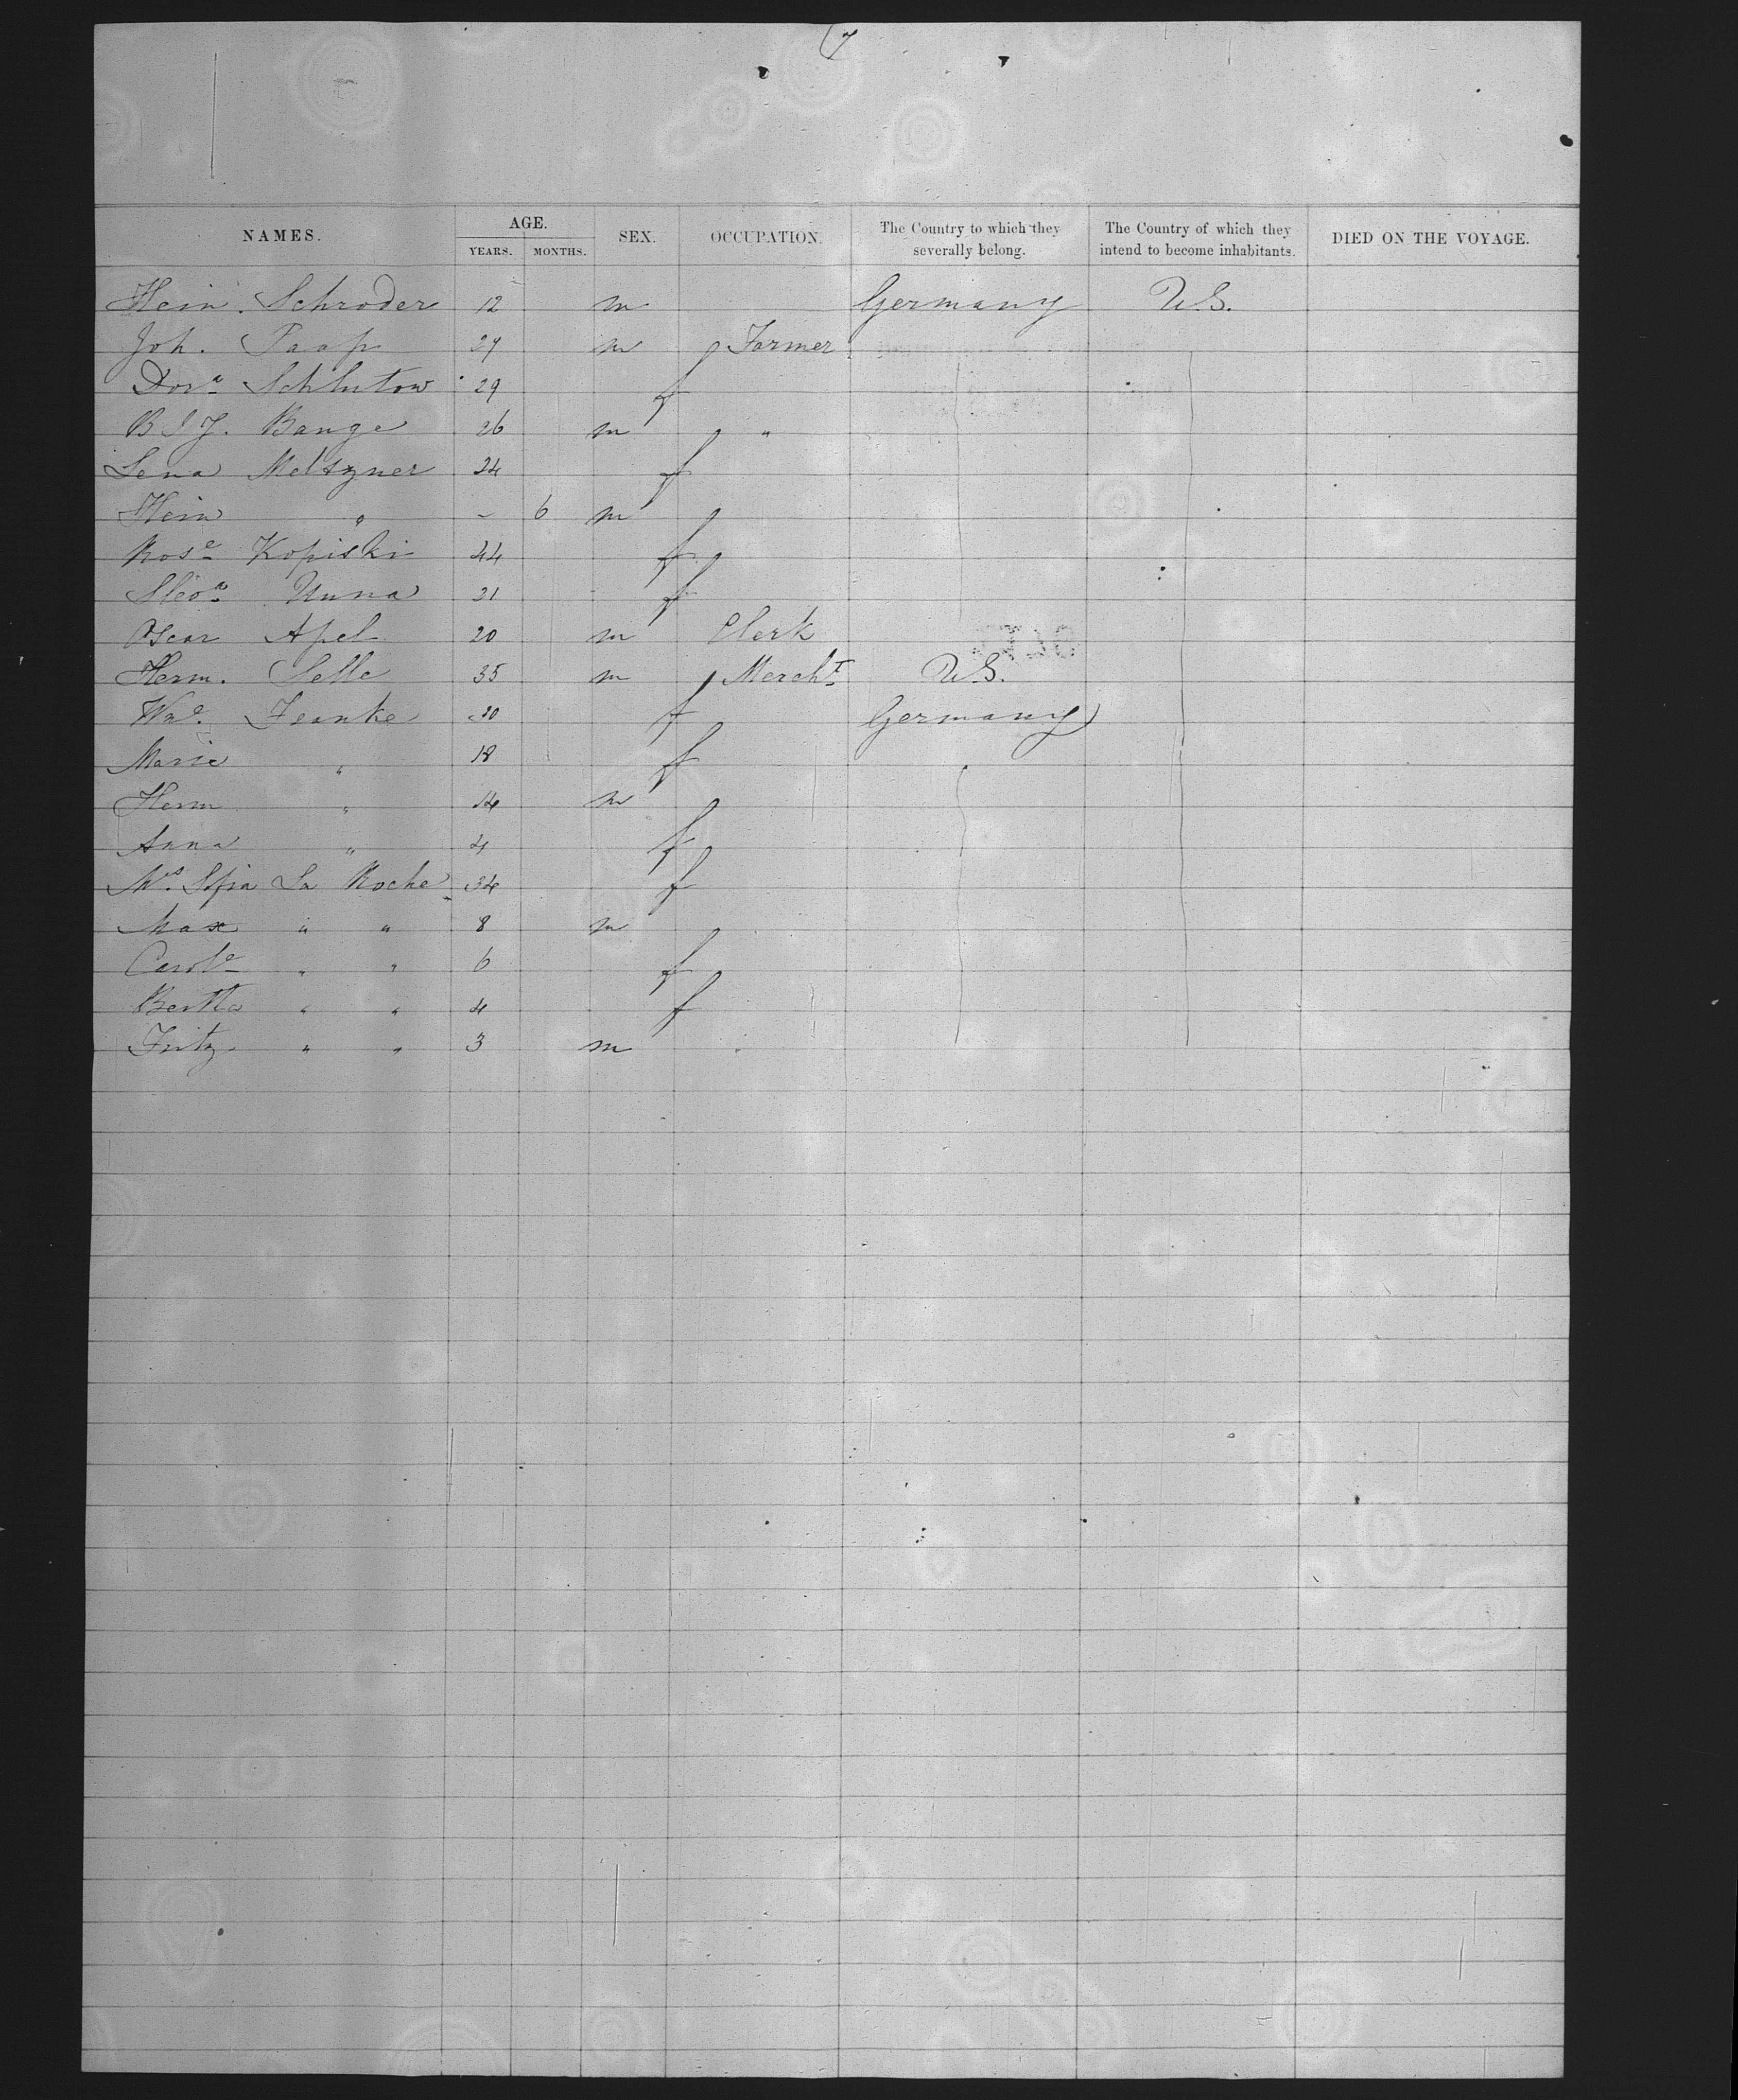 7
NAMES. AGE. YEARS. MONTHS. SEX. OCCUPATION. The Country to which they severally belong. The Country of which they intend to become inhabitants. DIED ON THE VOYAGE.
Hein. Schroder 12 m Germany U.S.
Joh. Paap 27 m Farmer
Dorª Schlutow 29 f
B J J. Bange 26 m "
Lena Meltzner 24 f
Hein " - 6 m
Rosᵉ Kopiski 44 f
Unna 21 f
Oscar Apel 20 m Clerk
Herm. Selle 35 m Merchᵗ U.S.
Wmᵉ. Franke 30 f Germany
Marie " 18 f
Herm " 14 m
Anna " 4 f
Mʳˢ Sofia La Roche 34 f
Max " " 8 m
Carolᵉ " " 6 f
Bertha " " 4 f
Fritz " " 3 m